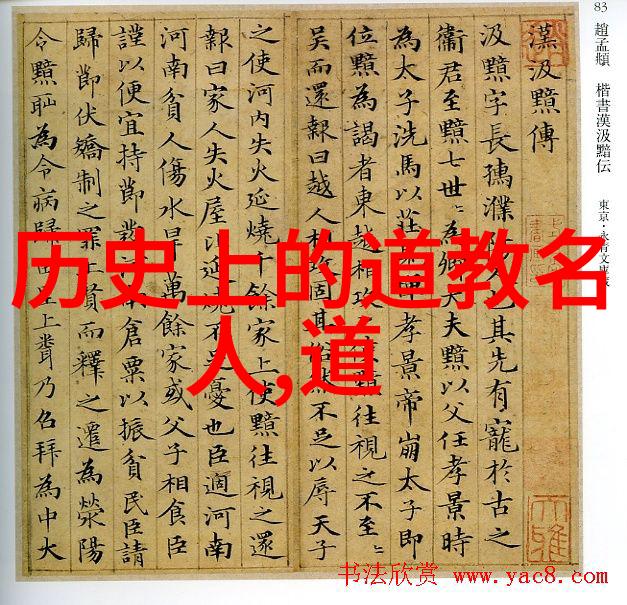 83 趙孟頫 楷書漢汲黯伝 東京·永青文庫蔵
漢汲黯傳
汲黯字長孺濮陽人也其先有寵於古之
衞君至黯七世世為卿大夫黯以父任孝景時
為太子洗馬以莊見憚孝景帝崩太子即
位黯為謁者東越相攻使黯往視之不至至
吳而還報曰越人相攻固其俗然不足以辱天子
之使河内失火延燒千餘家上使黯往視之還
報曰家人失火屋比延燒不足憂也臣適河南
河南貧人傷水旱萬餘家或父子相食臣
謹以便宜持節發河南倉粟以振貧民臣請
歸節伏矯制之罪上賢而釋之遷為滎陽
令黯恥為令病歸田里上聞乃召拜為中大
历史上的道教名
人,道
书法欣赏 www.yac8.com